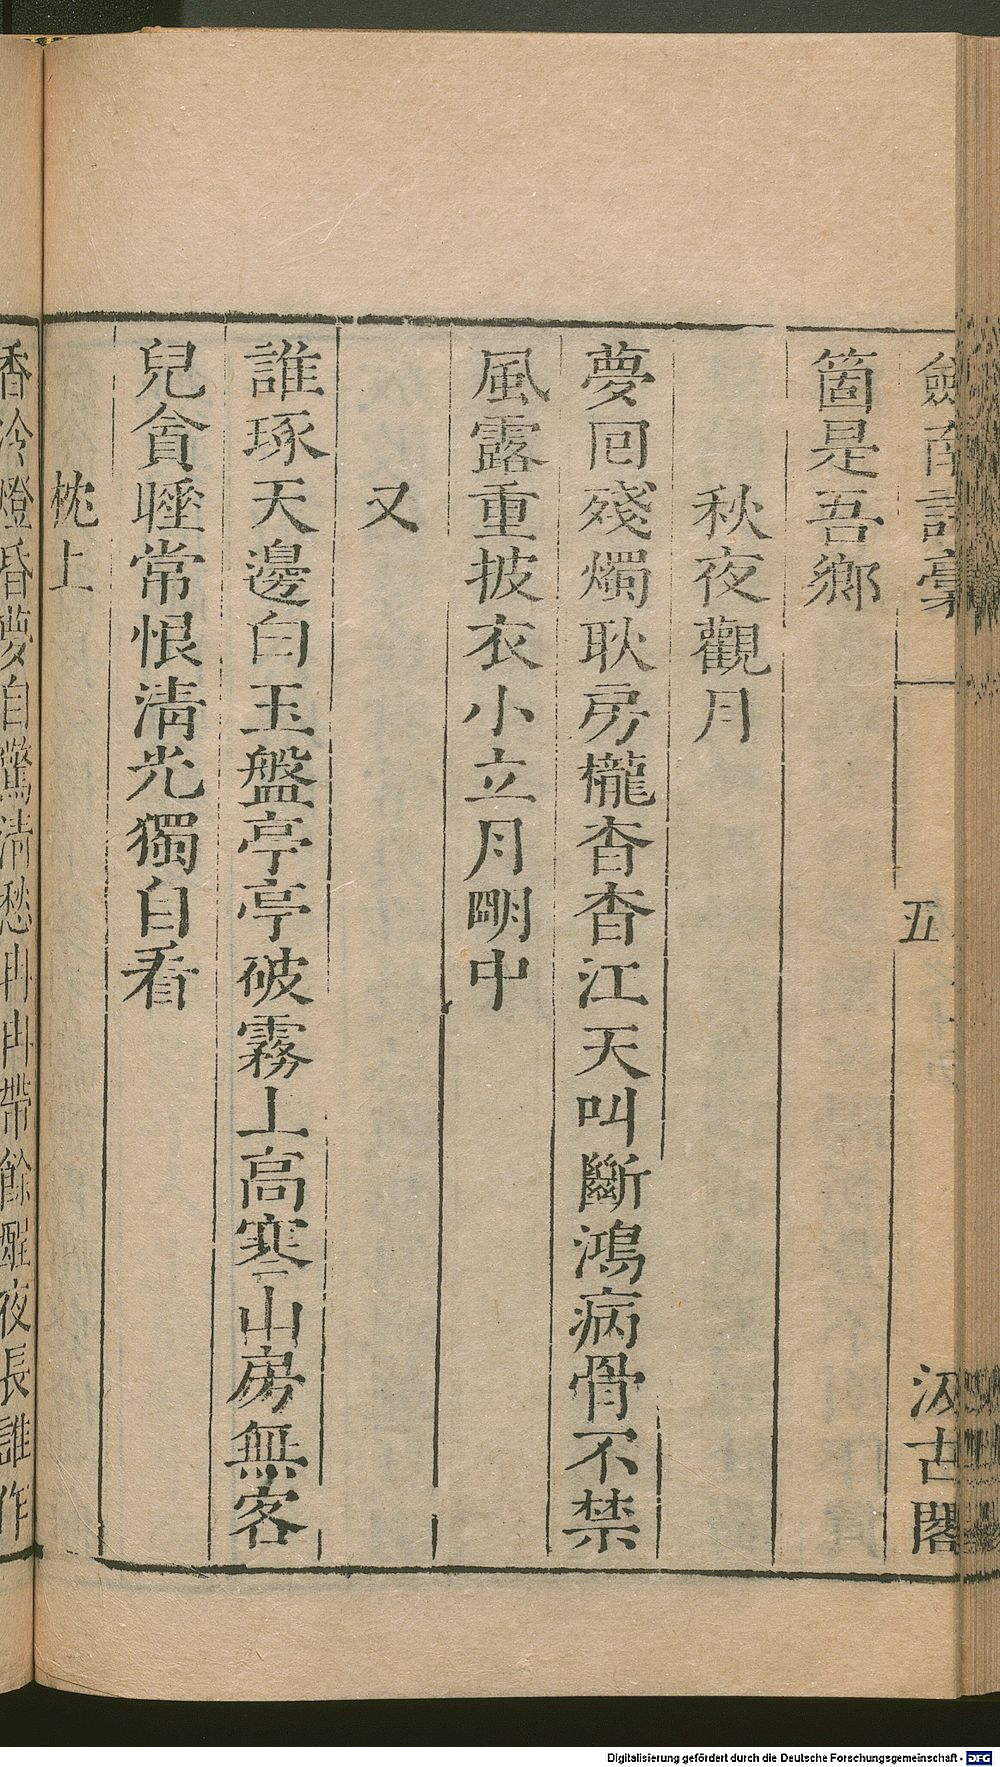 劒南詩稾
五
汲古閣
箇是吾鄉
秋夜觀月
夢回殘燭耿房櫳杳杳江天叫斷鴻病骨不禁
風露重披衣小立月明中
又
誰琢天邊白玉盤亭亭破霧上高寒山房無客
兒貪睡常恨清光獨自看
枕上
香冷燈昏夢自驚清愁冉冉帶餘酲夜長誰作
Digitalisierung gefördert durch die Deutsche Forschungsgemeinschaft - DFG